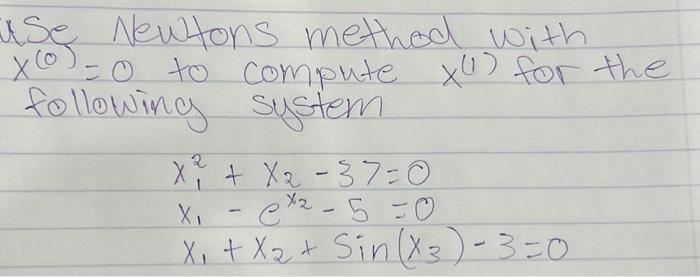 use Newtons method with
x^(0) = 0 to compute x^(1) for the
following system
x₁² + x₂ - 37 = 0
x₁ - e^x₂ - 5 = 0
x₁ + x₂ + Sin(x₃) - 3 = 0